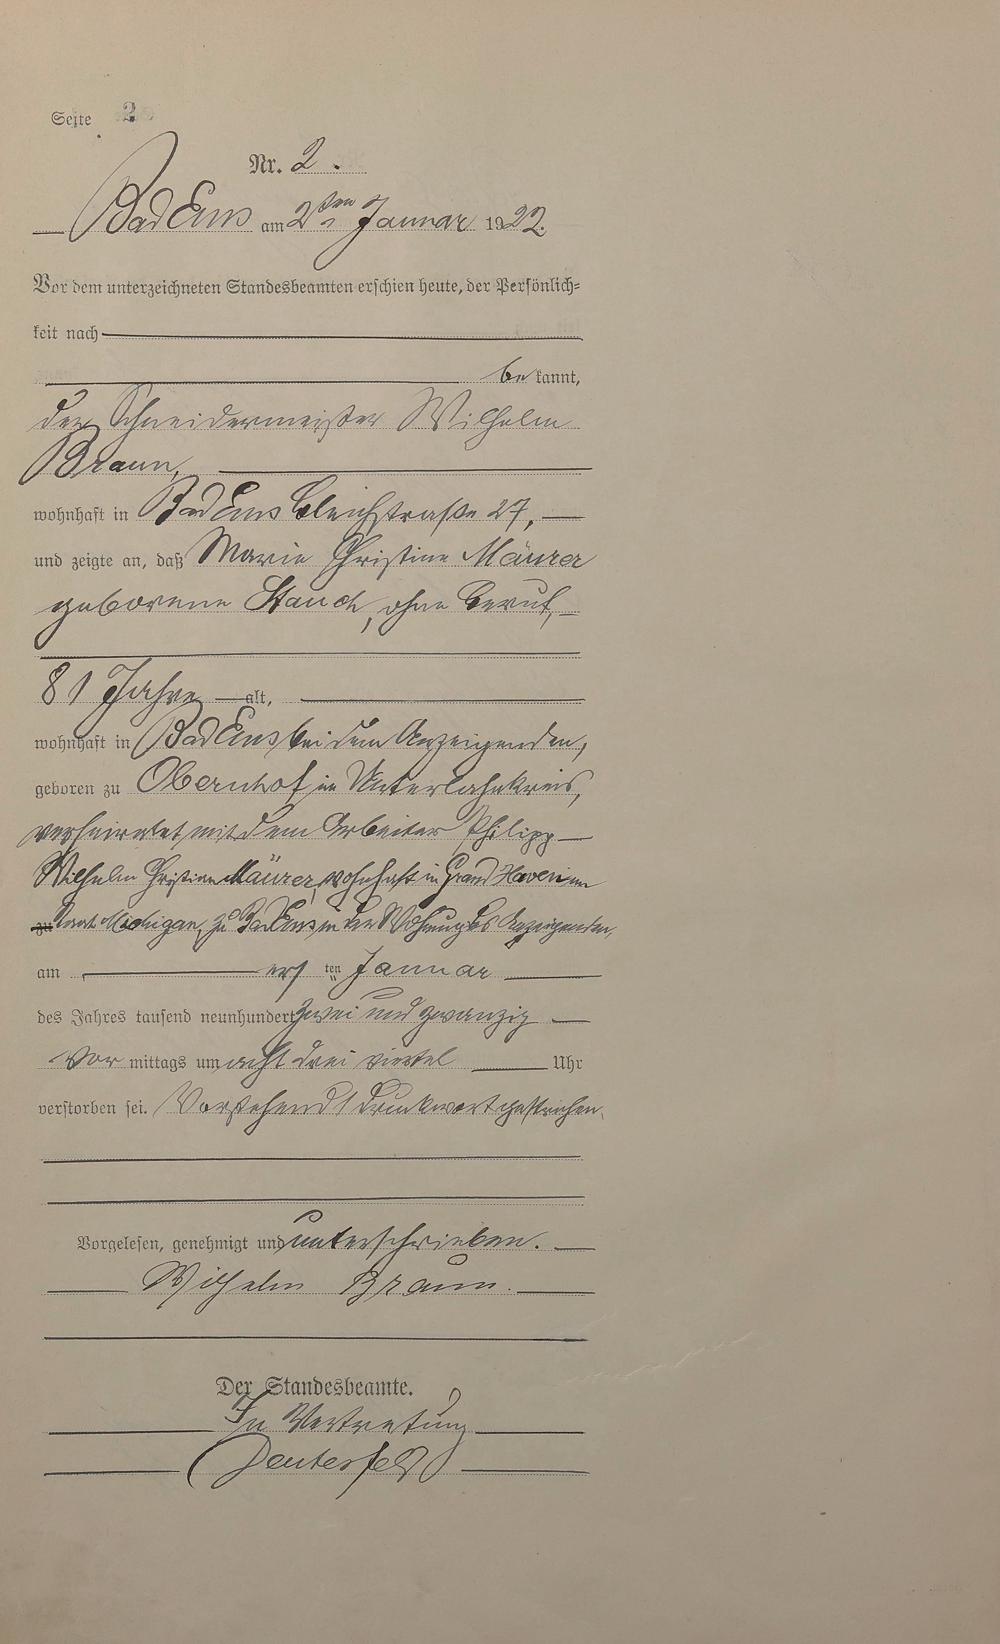 Seite 2
Nr. 2.
Bad Ems am 2ten Januar 1922.
Vor dem unterzeichneten Standesbeamten erschien heute, der Persönlich-
keit nach
be kannt,
der Schneidermeister Wilhelm
Braun,
wohnhaft in Bad Ems Bleichstraße 27,
und zeigte an, daß Marie Christine Mäurer
geborene Stauch, ohne Beruf,
81 Jahre alt,
wohnhaft in Bad Ems bei dem Anzeigenden,
geboren zu Obernhof im Unterlahnkreis,
verheiratet mit dem Arbeiter Philipp
Wilhelm Christian Mäurer, wohnhaft in Grand Haven im
zu Staat Michigan, zu Bad Ems in der Wohnung des Anzeigenden,
am ersten Januar
des Jahres tausend neunhundert zwei und zwanzig
Vor mittags um acht drei viertel Uhr
verstorben sei. Vorstehend 1 Druckwort gestrichen.
Vorgelesen, genehmigt und unterschrieben.
Wilhelm Braun.
Der Standesbeamte.
In Vertretung